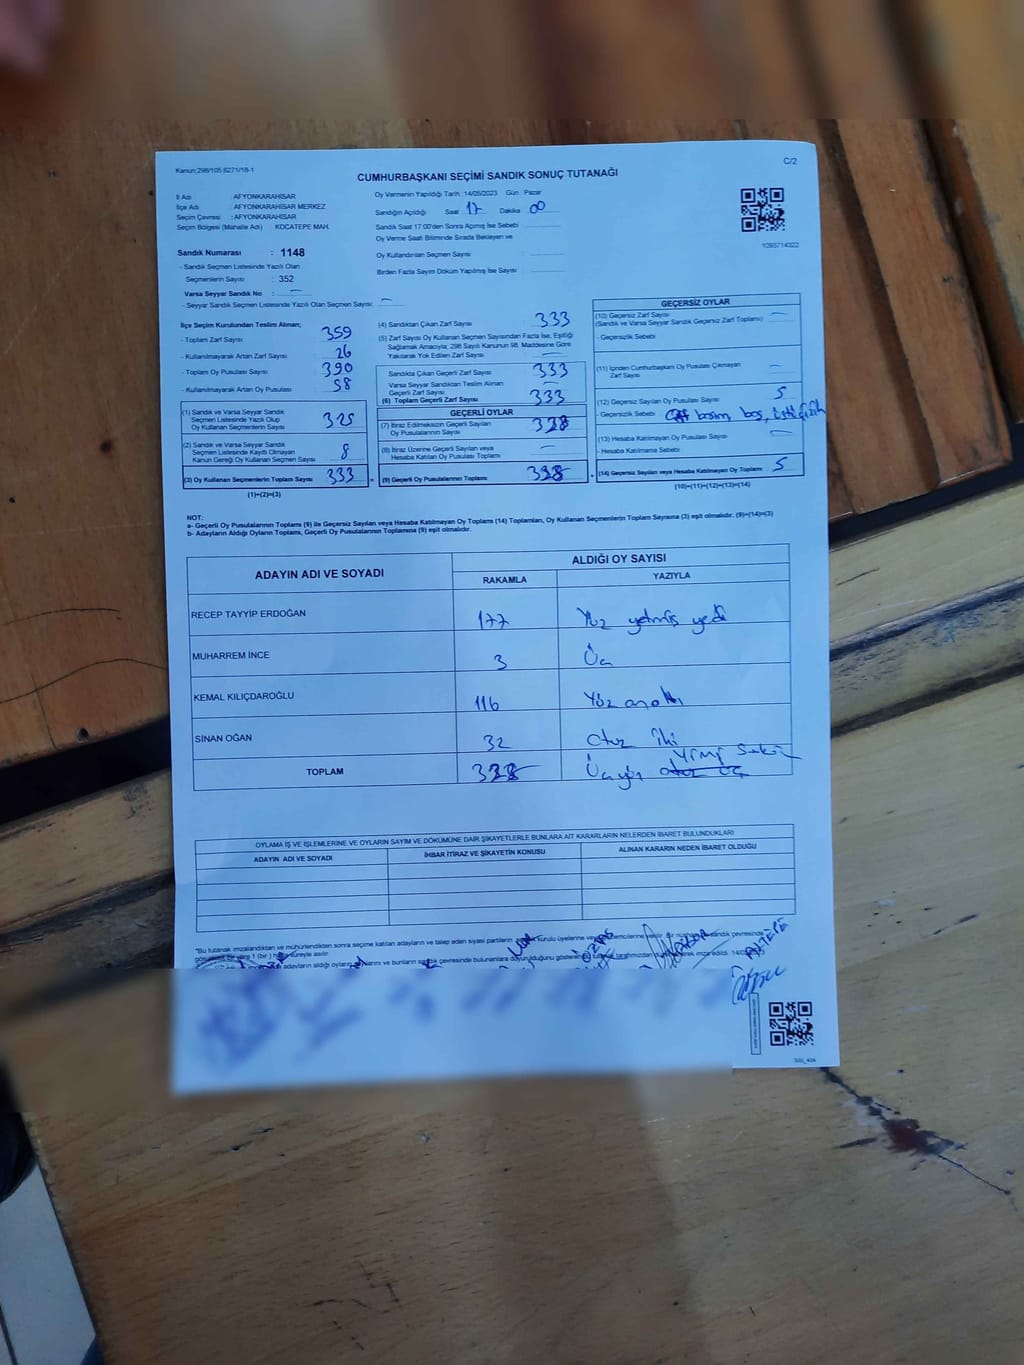 Kanun:298/105 6271/18-1
C/2
CUMHURBAŞKANI SEÇİMİ SANDIK SONUÇ TUTANAĞI
İl Adı : AFYONKARAHİSAR
İlçe Adı : AFYONKARAHİSAR MERKEZ
Seçim Çevresi : AFYONKARAHİSAR
Seçim Bölgesi (Mahalle Adı) KOCATEPE MAH.
Oy Vermenin Yapıldığı Tarih : 14/05/2023 Gün : Pazar
Sandığın Açıldığı Saat 17 Dakika 00
Sandık Saat 17:00'den Sonra Açılmış İse Sebebi
Oy Verme Saati Bitiminde Sırada Bekleyen ve
Oy Kullandırılan Seçmen Sayısı :
Birden Fazla Sayım Döküm Yapılmış İse Sayısı :
1093714322
Sandık Numarası : 1148
- Sandık Seçmen Listesinde Yazılı Olan
Seçmenlerin Sayısı : 352
Varsa Seyyar Sandık No : —
- Seyyar Sandık Seçmen Listesinde Yazılı Olan Seçmen Sayısı: —
İlçe Seçim Kurulundan Teslim Alınan;
- Toplam Zarf Sayısı 359
- Kullanılmayarak Artan Zarf Sayısı 26
- Toplam Oy Pusulası Sayısı 390
- Kullanılmayarak Artan Oy Pusulası 58
(1) Sandık ve Varsa Seyyar Sandık
Seçmen Listesinde Yazılı Olup
Oy Kullanan Seçmenlerin Sayısı 325
(2) Sandık ve Varsa Seyyar Sandık
Seçmen Listesinde Kayıtlı Olmayan
Kanun Gereği Oy Kullanan Seçmen Sayısı 8
(3) Oy Kullanan Seçmenlerin Toplam Sayısı 333
(1)+(2)=(3)
(4) Sandıktan Çıkan Zarf Sayısı 333
(5) Zarf Sayısı Oy Kullanan Seçmen Sayısından Fazla İse, Eşitliği
Sağlamak Amacıyla; 298 Sayılı Kanunun 98. Maddesine Göre
Yakılarak Yok Edilen Zarf Sayısı —
Sandıkta Çıkan Geçerli Zarf Sayısı 333
Varsa Seyyar Sandıktan Teslim Alınan
Geçerli Zarf Sayısı —
(6) Toplam Geçerli Zarf Sayısı 333
GEÇERLİ OYLAR
(7) İtiraz Edilmeksizin Geçerli Sayılan
Oy Pusulasının Sayısı 328
(8) İtiraz Üzerine Geçerli Sayılan veya
Hesaba Katılan Oy Pusulası Toplamı —
(9) Geçerli Oy Pusulalarının Toplamı 328
GEÇERSİZ OYLAR
(10) Geçersiz Zarf Sayısı —
(Sandık ve Varsa Seyyar Sandık Geçersiz Zarf Toplamı)
- Geçersizlik Sebebi
(11) İçinden Cumhurbaşkanı Oy Pusulası Çıkmayan
Zarf Sayısı —
(12) Geçersiz Sayılan Oy Pusulası Sayısı 5
- Geçersizlik Sebebi basım, boş, üstü çizik
(13) Hesaba Katılmayan Oy Pusulası Sayısı —
- Hesaba Katılmama Sebebi
(14) Geçersiz Sayılan veya Hesaba Katılmayan Oy Toplamı 5
(10)+(11)+(12)+(13)=(14)
NOT:
a- Geçerli Oy Pusulalarının Toplamı (9) ile Geçersiz Sayılan veya Hesaba Katılmayan Oy Toplamı (14) Toplamları, Oy Kullanan Seçmenlerin Toplam Sayısına (3) eşit olmalıdır. (9)+(14)=(3)
b- Adayların Aldığı Oyların Toplamı, Geçerli Oy Pusulalarının Toplamına (9) eşit olmalıdır.
ADAYIN ADI VE SOYADI
ALDIĞI OY SAYISI
RAKAMLA YAZIYLA
RECEP TAYYİP ERDOĞAN 177 Yüz yetmiş yedi
MUHARREM İNCE 3 Üç
KEMAL KILIÇDAROĞLU 116 Yüz onaltı
SİNAN OĞAN 32 Otuz iki
TOPLAM 328 Üçyüz otuz üç Yirmi Sekiz
OYLAMA İŞ VE İŞLEMLERİNE VE OYLARIN SAYIM VE DÖKÜMÜNE DAİR ŞİKAYETLERLE BUNLARA AİT KARARLARIN NELERDEN İBARET BULUNDUKLARI
ADAYIN ADI VE SOYADI İHBAR İTİRAZ VE ŞİKAYETİN KONUSU ALINAN KARARIN NEDEN İBARET OLDUĞU
"Bu tutanak imzalandıktan ve mühürlendikten sonra seçime katılan adayların ve talep eden siyasi partilerin kurulu üyelerine sandık çevresinde
adayların aldığı oyların ve bunların sandık çevresinde bulunanlara duyurulduğunu tarafımızdan imza edildi.